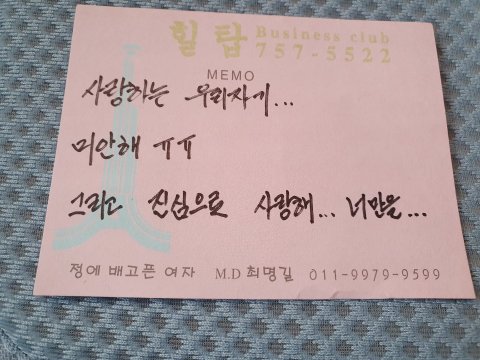 힐탑 Business club
757-5522
MEMO
사랑하는 우리자기...
미안해 ㅠㅠ
그리고 진심으로 사랑해... 너만을...
정에 배고픈 여자 M.D 최명길 011-9979-9599